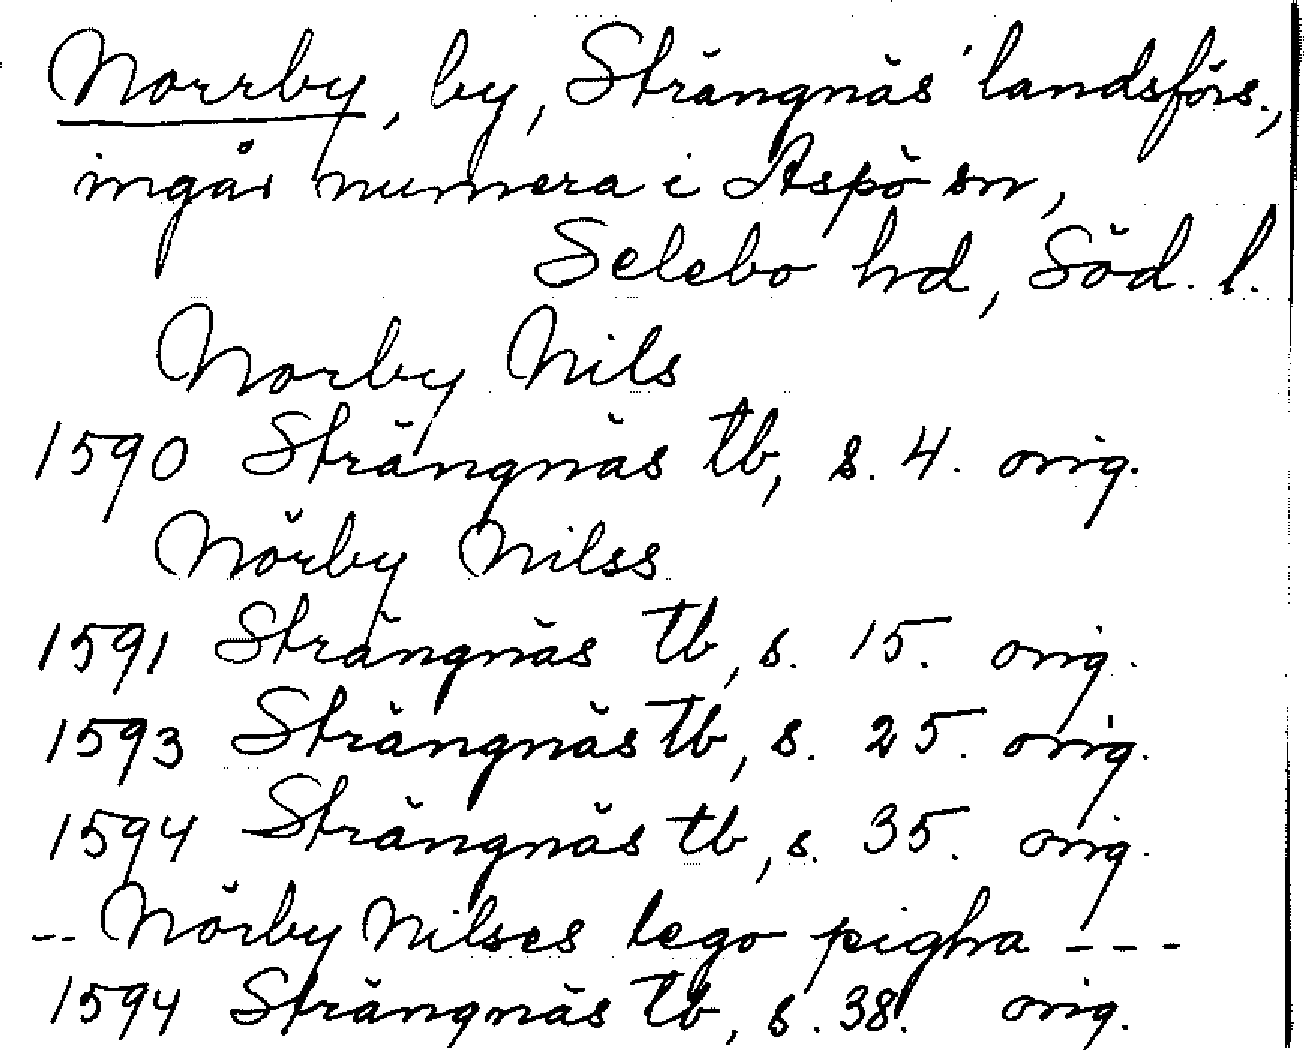 Norrby, by, Strängnäs landsförs.,
ingår numera i Aspö sn,
Selebo hd, Söd. l.
Norby Nils
1590 Strängnäs tb, s. 4. orig.
Nörby Nilss
1591 Strängnäs tb, s. 15. orig.
1593 Strängnäs tb, s. 25. orig.
1594 Strängnäs tb, s. 35. orig.
-- Nörby Nilses lego pighra ---
1594 Strängnäs tb, s. 38. orig.